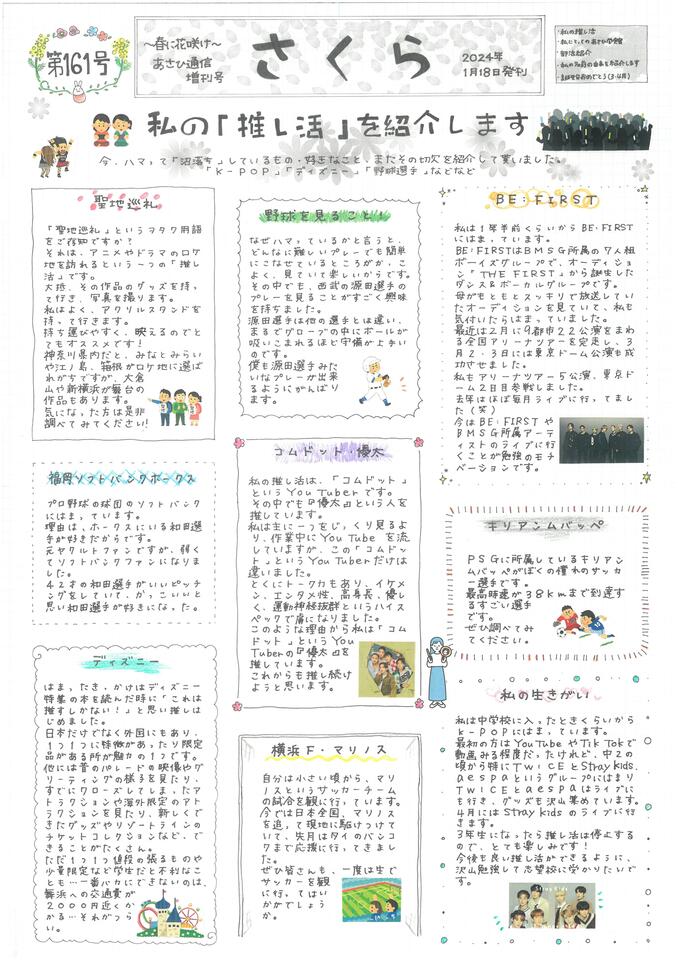 第161号
～春に花咲け～
あさひ通信
増刊号
さくら
2024年
1月18日発刊
・私の推し活
・部活紹介
私の「推し活」を紹介します
今、ハマって「沼落ち」しているもの・好きなこと、またその切欠を紹介して貰いました。
「K-POP」「ディズニー」「野球選手」などなど
聖地巡礼
「聖地巡礼」というヲタク用語
をご存知ですか？
それは、アニメやドラマのロケ
地を訪れるという一つの「推し
活」です。
大抵、その作品のグッズを持っ
て行き、写真を撮ります。
私はよく、アクリルスタンドを
持って行きます。
持ち運びやすく、映えるのでと
てもオススメです！
神奈川県内だと、みなとみらい
や江ノ島、箱根がロケ地に選ば
れがちですが、大倉
山や新横浜が舞台の
作品もあります。
気になった方は是非
調べてみてください！
福岡ソフトバンクホークス
プロ野球の球団のソフトバンク
にはまっています。
理由は、ホークスにいる和田選
手が好きだからです。
元ヤクルトファンですが、弱く
てソフトバンクファンになりま
した。
42才の和田選手がいいピッチ
ングをしていて、かっこいいと
思い和田選手が好きになった。
ディズニー
はまったきっかけはディズニー
特集の本を読んだ時に「これは
推すしかない！」と思い推しは
じめました。
日本だけでなく外国にもあり、
1つ1つに特徴があったり限定
品がある所が魅力の1つです。
他には昔のパレードの映像やグ
リーティングの様子を見たり、
すでにクローズしてしまったア
トラクションや海外限定のアト
ラクションを見たり、新しくで
きたグッズやリゾートラインの
チケットコレクションなど、で
きることがたくさん。
ただ1つ1つ値段の張るものや
少量限定など学生だと不利なこ
とも…一番バカにできないのは、
舞浜への交通費が
2000円近くか
かる…それがつら
い。
野球を見ること！
なぜハマっているかと言うと、
どんなに難しいプレーでも簡単
にこなせているところがか、こ
よく、見ていて楽しいからです。
その中でも、西武の源田選手の
プレーを見ることがすごく興味
を持ちました。
源田選手は他の選手とは違い、
まるでグローブの中にボールが
吸いこまれるほど守備が上手い
のです。
僕も源田選手みた
いなプレーが出来
るようにがんばり
ます。
コムドット・優太
私の推し活は、「コムドット」
というYouTuberです。
その中でも『優太』という人を
推しています。
私は主に一つをじっくり見るよ
り、作業中にYouTubeを流
していますが、この「コムドッ
ト」というYouTuberだけは
違いました。
とくにトークカもあり、イケメ
ン、エンタメ性、高身長、優し
く、運動神経抜群というハイス
ペックで虜になりました。
このような理由から私は「コム
ドット」というYou
Tuberの『優太』を
推しています。
これからも推し続け
ようと思います。
横浜F・マリノス
自分は小さい頃から、マリ
ノスというサッカーチーム
の試合を観に行っています。
今では日本全国、マリノス
を追って現地に駆けつけて
いて、先月はタイのバンコ
クまで応援に行ってきまし
た。
ぜひ皆さんも、一度は生で
サッカーを観
に行ってはい
かがでしょう
か。
BE:FIRST
私は1年半前くらいからBE:FIRST
にはまっています。
BE:FIRSTはBMSG所属の7人組
ボーイズグループで、オーディショ
ン「THE FIRST」から誕生した
ダンス&ボーカルグループです。
母がもともとスッキリで放送してい
たオーディションを見ていて、私も
気付いたらはまっていました。
最近は2月に9都市22公演をまわ
る全国アリーナツアーを完走し、3
月2・3日には東京ドーム公演も成
功させました。
私もアリーナツアー5公演、東京ド
ーム2日目参戦しました。
去年はほぼ毎月ライブに行ってまし
た（笑）
今はBE:FIRSTや
BMSG所属アーテ
ィストのライブに行
くことが勉強のモチ
ベーションです。
キリアンムバッペ
PSGに所属しているキリアン
ムバッペがぼくの憧れのサッカ
ー選手です。
最高時速が38kmまで到達す
るすごい選手
です。
ぜひ調べてみ
てください。
私の生きがい
私は中学校に入ったときくらいから
K-POPにはまっています。
最初の方はYouTubeやTikTokで
動画みる程度だったけれど、中2の
頃から特にTWICEとStray kids、
aespaというグループにはまり
TWICEとaespaはライブに
も行き、グッズも沢山集めています。
4月にはStray kidsのライブに行き
ます。
3年生になったら推し活は停止する
ので、とても楽しみです！
今後も良い推し活ができるように、
沢山勉強して志望校に受かりたいで
す。
Stray Kids